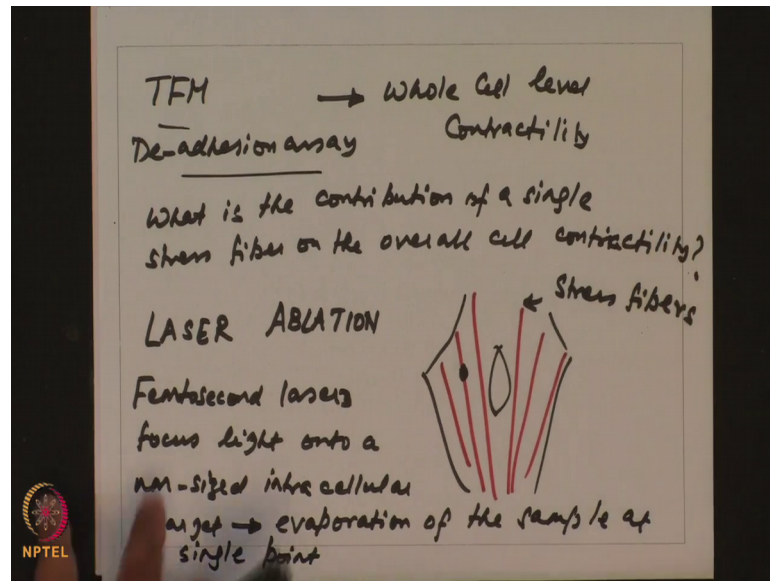 TFM → Whole Cell level
Contractility
De-adhesion assay
What is the contribution of a single
stress fiber on the overall cell contractility?
← Stress fibers
LASER ABLATION
Femtosecond lasers
focus light onto a
nm-sized intracellular
arget → evaporation of the sample at
single point
NPTEL